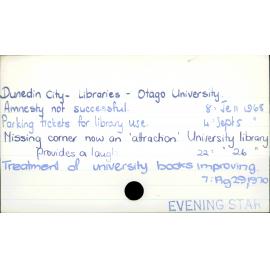 Dunedin City- Libraries - Otago University.
Amnesty not successful. 8: Jan 1968
Parking tickets for library use. 4: Sept 5 "
Missing corner now an 'attraction' University library
Provides a laugh. 22: " 26 "
Treatment of university books improving.
7: Ag 29, 1970
EVENING STAR